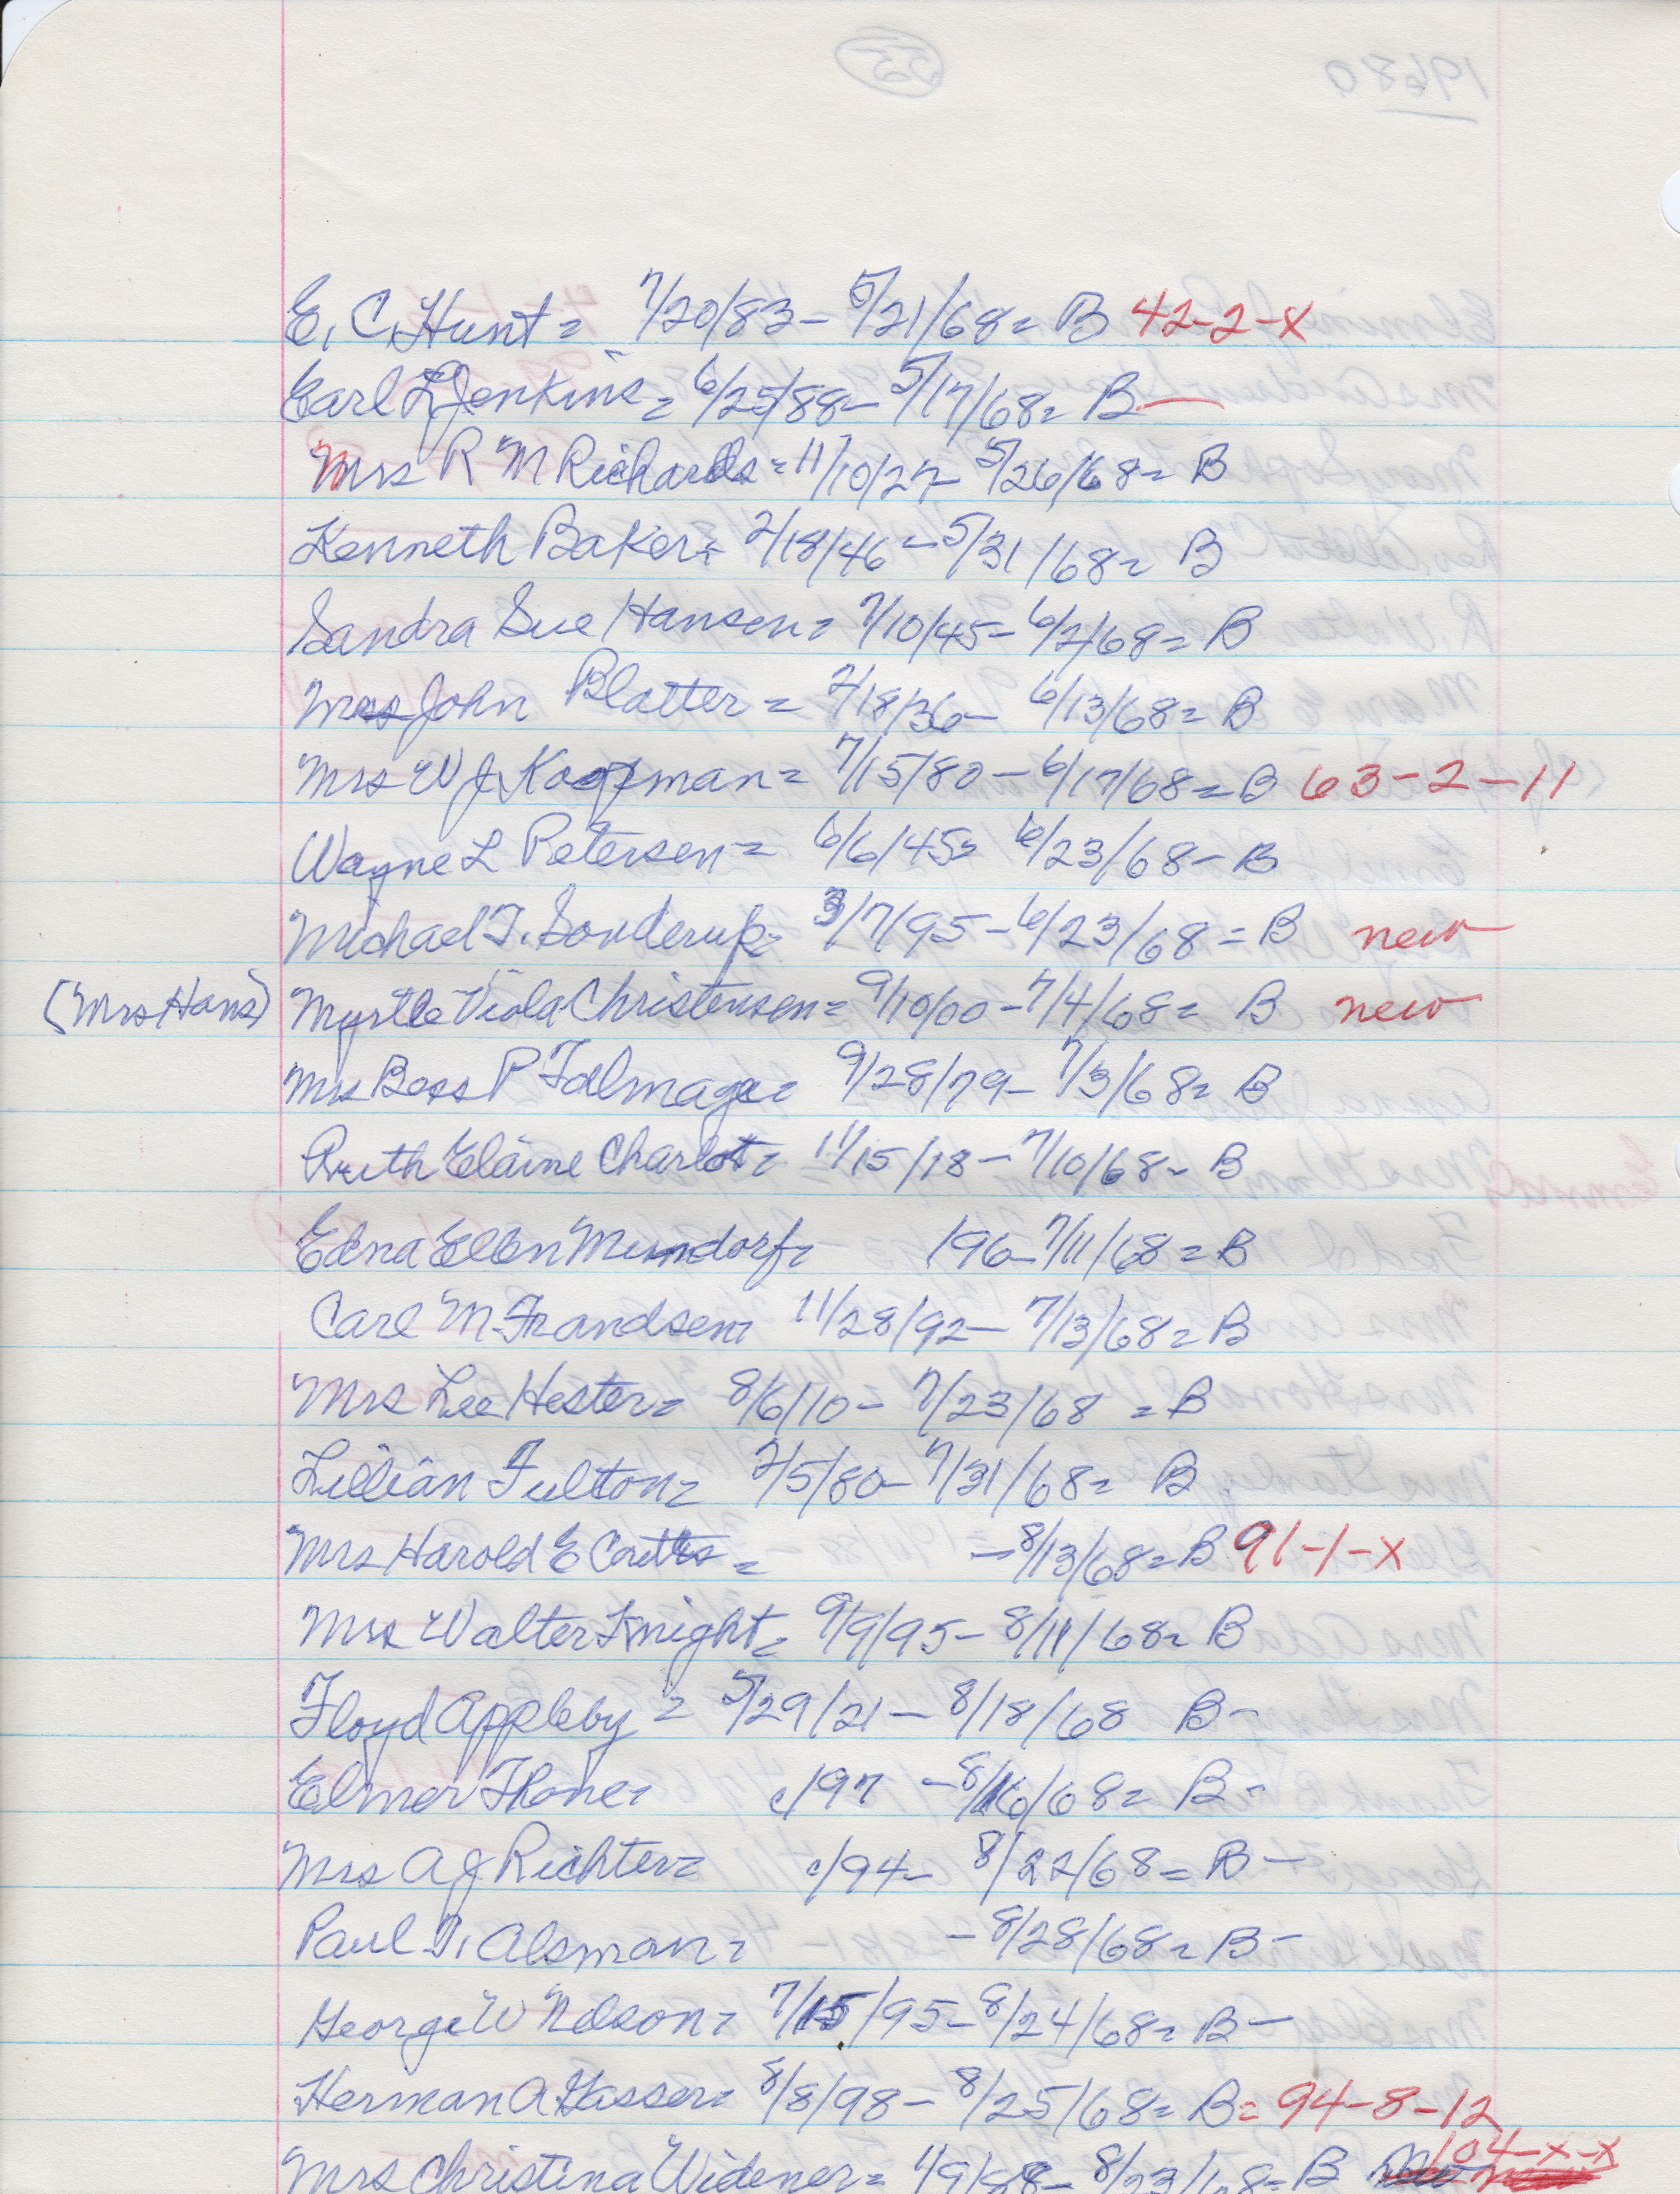 E. C. Hunt = 7/20/83 - 5/21/68 = B 42-2-X
Earl L Jenkins = 6/25/88 - 5/17/68 = B —
Mrs R M Richards = 11/10/27 - 5/26/68 = B
Kenneth Baker = 2/18/46 - 5/31/68 = B
Sandra Sue Hansen = 7/10/45 - 6/2/68 = B
Mrs John Blatter = 2/18/36 - 6/13/68 = B
Mrs W J Koopman = 7/15/80 - 6/17/68 = B 63-2-11
Wayne L Petersen = 6/6/45 = 6/23/68 - B
Michael T. Sonderup - 3/7/95 - 6/23/68 = B new
(Mrs Hans) Myrtle Viola Christensen = 9/10/00 - 7/4/68 = B new
Mrs Bess P Talmage = 9/28/79 - 7/3/68 = B
Ruth Elaine Charlot = 11/15/18 - 7/10/68 - B
Edna Ellen Mundorf = 196 - 7/11/68 = B
Carl M. Frandsen = 11/28/92 - 7/13/68 = B
Mrs Lee Hester = 8/6/10 - 7/23/68 = B
Lillian Fulton = 2/5/80 - 7/31/68 = B
Mrs Harold E = - 8/13/68 = B 91-1-X
Mrs Walter Knight = 9/9/95 - 8/11/68 = B
Floyd Appleby = 5/29/21 - 8/18/68 B -
Elmer = c/97 - 8/16/68 = B -
Mrs A J Richter = c/94 - 8/22/68 = B -
Paul T. Alsman = - 8/28/68 = B -
George W Nelson = 7/15/95 - 8/24/68 = B -
Herman A Gasser = 8/8/98 - 8/25/68 = B = 94-8-12
Mrs Christina Widener = 8/23/68 = B 104-X-X